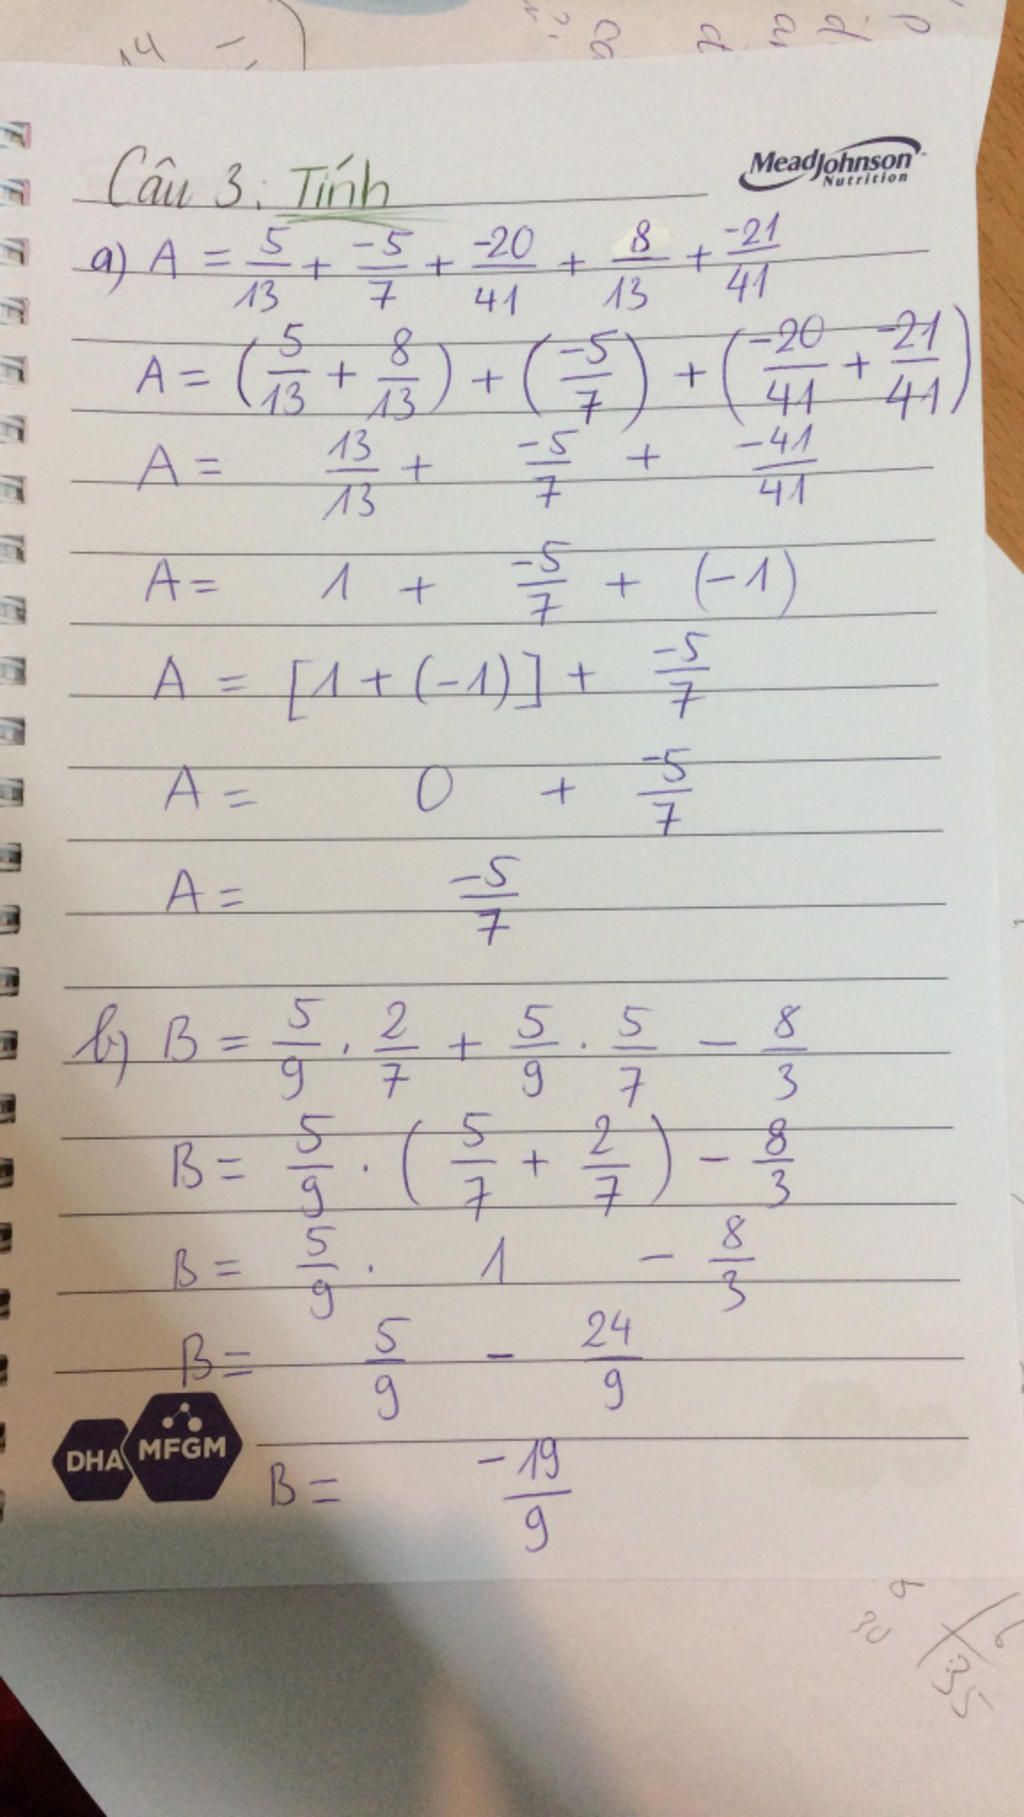 Câu 3: Tính
MeadJohnson
Nutrition
a) A = 5/13 + -5/7 + -20/41 + 8/13 + -21/41
A = (5/13 + 8/13) + (-5/7) + (-20/41 + -21/41)
A = 13/13 + -5/7 + -41/41
A = 1 + -5/7 + (-1)
A = [1 + (-1)] + -5/7
A = 0 + -5/7
A = -5/7
b) B = 5/9 . 2/7 + 5/9 . 5/7 - 8/3
B = 5/9 . (5/7 + 2/7) - 8/3
B = 5/9 . 1 - 8/3
B = 5/9 - 24/9
DHA MFGM
B = -19/9
35